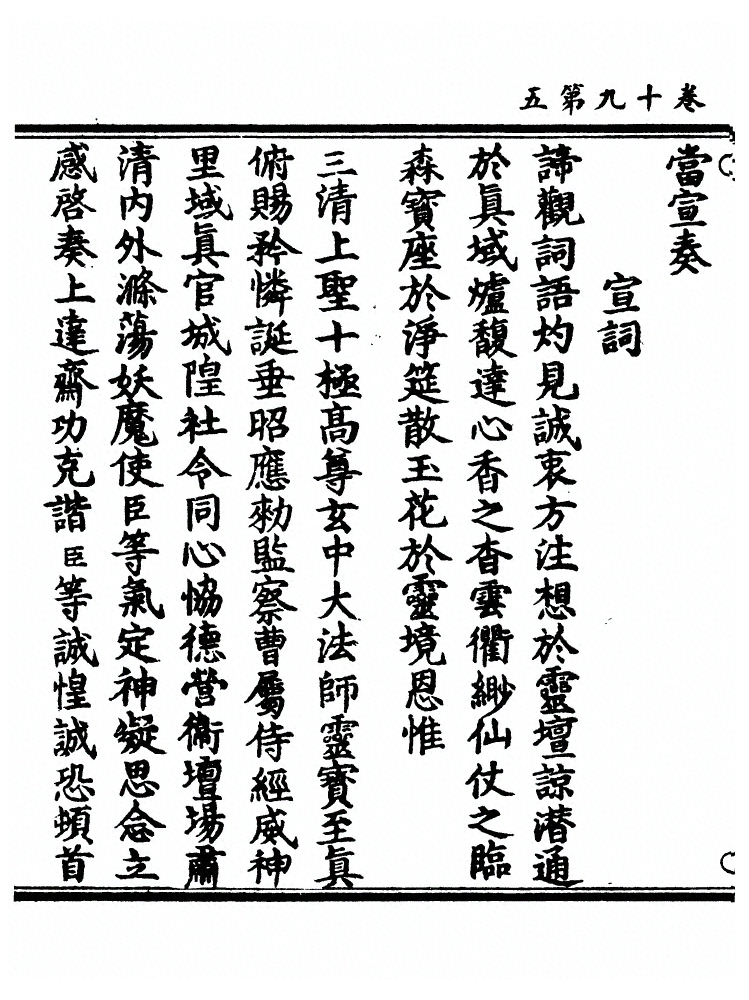 卷十九第五
當宣奏
宣詞
諦觀詞語灼見誠衷方注想於靈壇諒潜通
於眞域爐馥達心香之杳雲衢緲仙仗之臨
森寶座於淨筵散玉花於靈境恩惟
三清上聖十極高尊玄中大法師靈寶至眞
俯賜矜憐誕垂昭應勑監察曹屬侍經威神
里域眞官城隍社令同心恊德營衞壇場肅
清内外滌蕩妖魔使臣等氣定神凝思念立
感啓奏上達齋功克諧臣等誠惶誠恐頓首